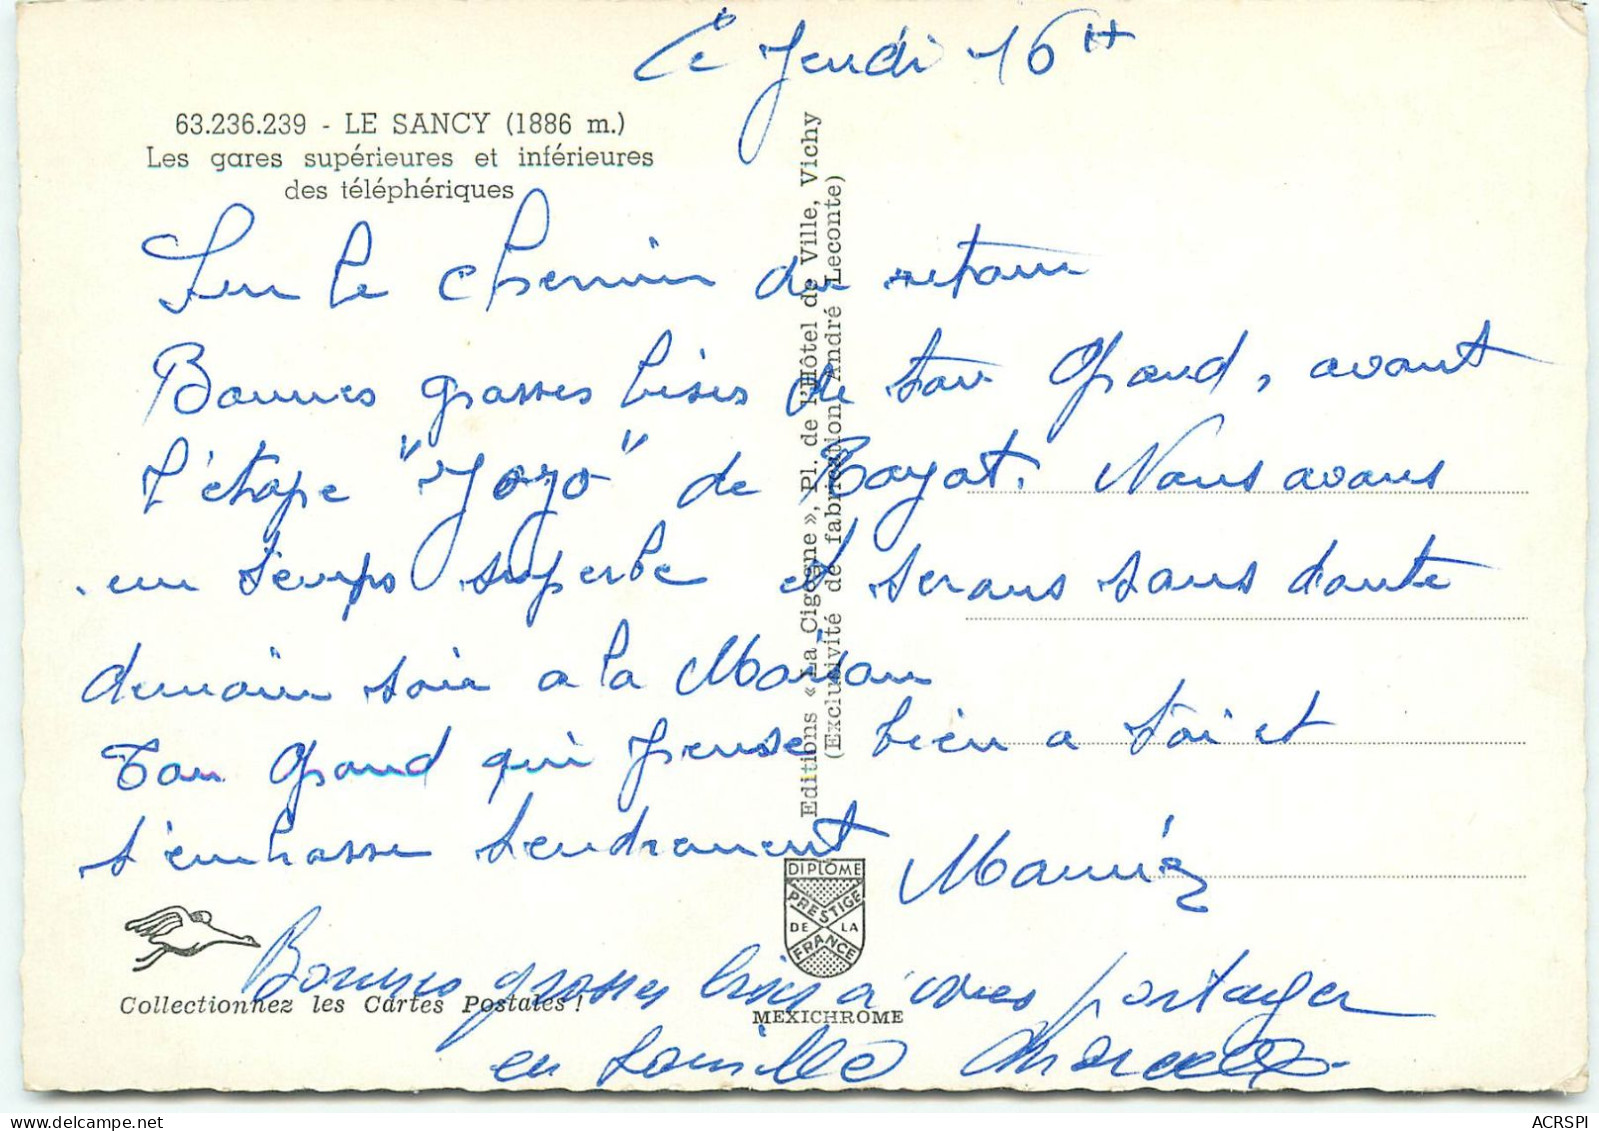 Ce Jeudi 16 H
63.236.239 - LE SANCY (1886 m.)
Les gares supérieures et inférieures
des téléphériques
Sur le chemin du retour
Bonnes grosses bises de ton Grand, avant
l'étape "Jojo" de Royat. Nous avons
un temps superbe et serons sans doute
demain soir a la Maison
Ton Grand qui pense bien a toi et
t'embrasse tendrement
Bonnes grosses bises à partager
en famille
Editions « La Cigogne », Pl. de l'Hôtel de Ville, Vichy
(Exclusivité de fabrication André Leconte)
DIPLOME
PRESTIGE
DE LA
FRANCE
MEXICHROME
Collectionnez les Cartes Postales !
ACRSPI